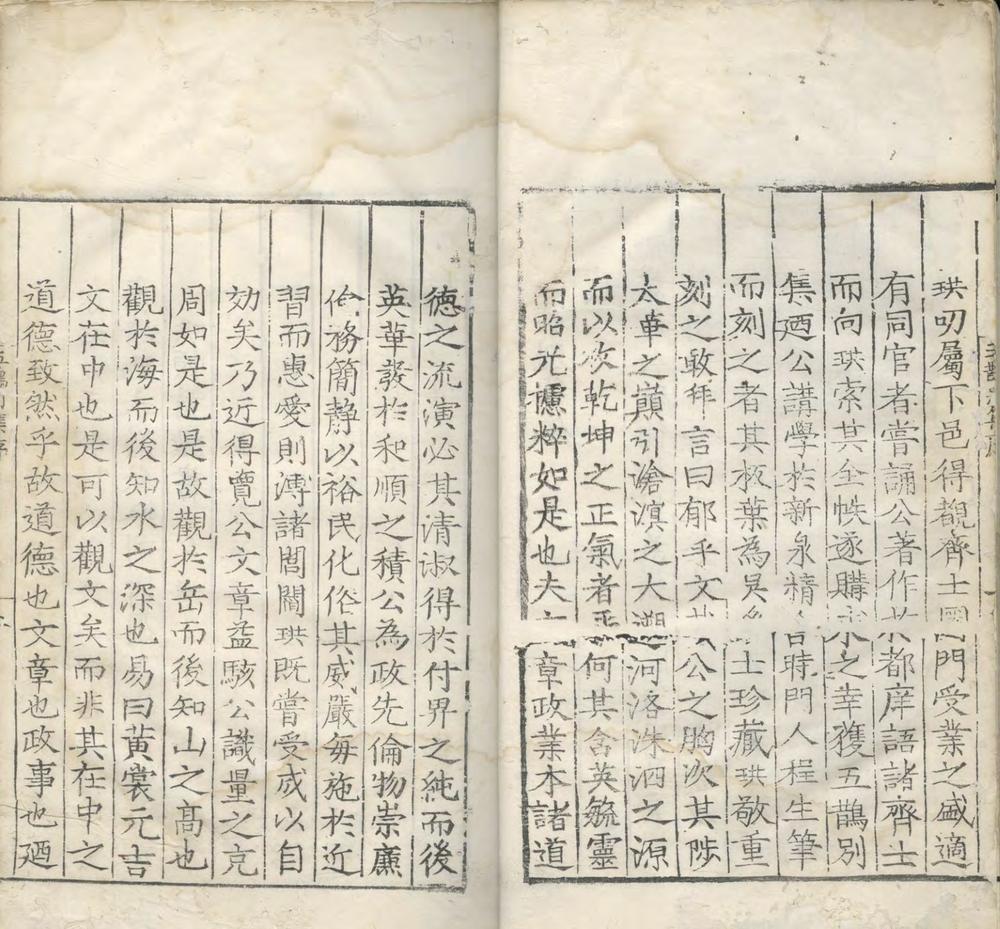 珙叨屬下邑得覩齊士國門受業之盛適
有同官者嘗誦公著作於都庠語諸齊士
而向珙索其全帙遂購求之幸獲五鵲別
集廼公講學於新泉精舍時門人程生筆
而刻之者其板葉為吳士珍藏珙敬重
刻之敢拜言曰郁乎文公之胸次其陟
太華之巔引滄溟之大遡河洛洙泗之源
而以收乾坤之正氣者乎何其含英毓靈
而昭光攄粹如是也夫文章政業本諸道
德之流演必其清淑得於付畀之純而後
英華發於和順之積公為政先倫物崇廉
儉務簡靜以裕民化俗其威嚴每施於近
習而惠愛則溥諸閭閻珙既嘗受成以自
効矣乃近得覽公文章益駭公識量之克
周如是也是故觀於岳而後知山之高也
觀於海而後知水之深也易曰黃裳元吉
文在中也是可以觀文矣而非其在中之
道德致然乎故道德也文章也政事也廼